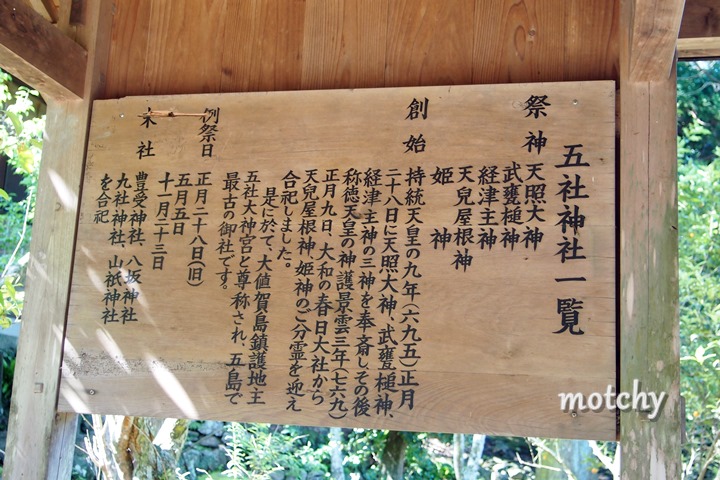 五社神社一覧
祭神 天照大神
武甕槌神
経津主神
天兒屋根神
姫神
創始 持統天皇の九年(六九五)正月
二十八日に天照大神、武甕槌神、
経津主神の三神を奉斎しその後
称徳天皇の神護景雲三年(七六九)
正月九日、大和の春日大社から
天兒屋根神、姫神のご分霊を迎え
合祀しました。
是に於て、大値賀島鎮護地主
五社大神宮と尊称され、五島で
最古の御社です。
例祭日 正月二十八日(旧)
五月五日
十一月二十三日
末社 豊受神社、八坂神社
九社神社、山祇神社
を合祀
motchy